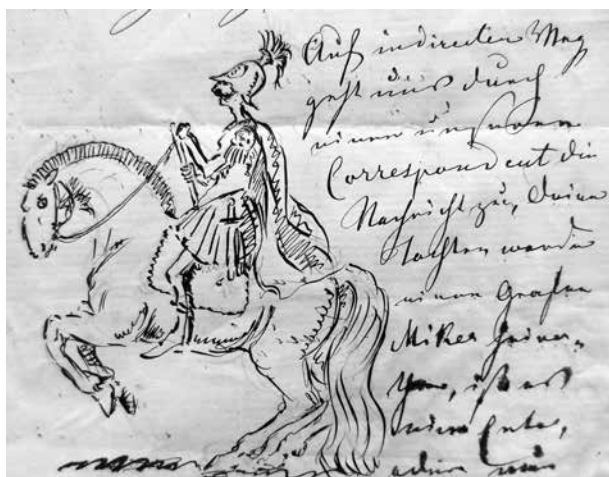 Auf indirecten Weg
geht uns durch
einen unserer
Correspondent die
Nachricht zu, deine
Tochter werde
einen Grafen
Mikes heira-
then, ist es
eine Ente,
oder